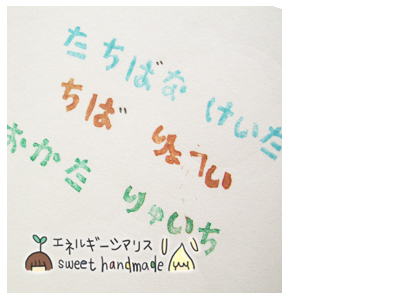 たちばな けいた
ちば りょへい
おかた りゅいち
エネルギーシアリス
sweet handmade